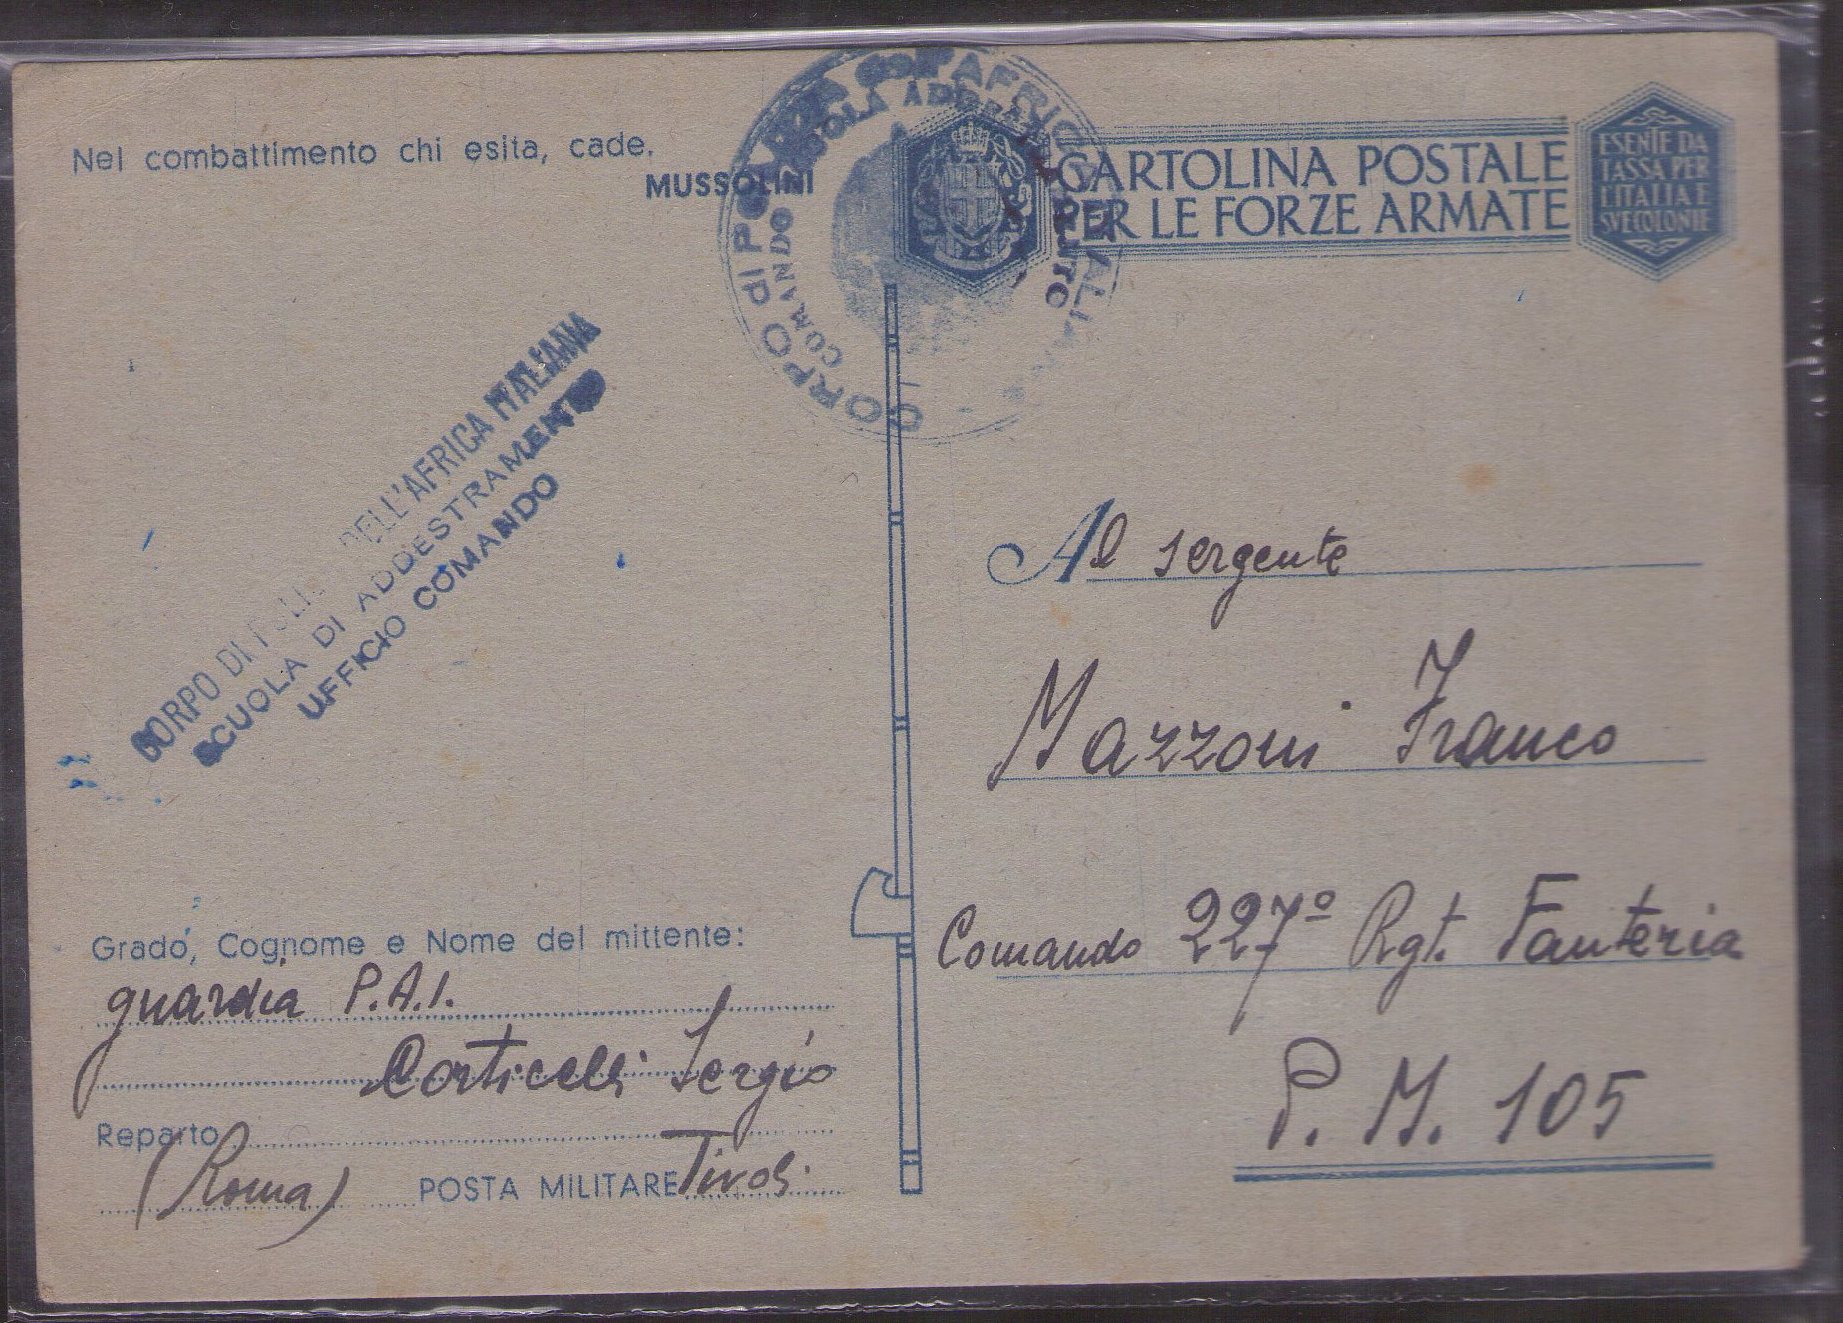 Nel combattimento chi esita, cade.
MUSSOLINI
CORPO di POLIZIA dell'AFRICA ITALIANA
COMANDO SCUOLA ADDESTRAMENTO
CARTOLINA POSTALE
PER LE FORZE ARMATE
ESENTE DA
TASSA PER
L'ITALIA E
SVE COLONIE
CORPO DI POLIZIA DELL'AFRICA ITALIANA
SCUOLA DI ADDESTRAMENTO
UFFICIO COMANDO
Al sergente
Mazzoni Franco
Comando 227º Rgt. Fanteria
P. M. 105
Grado, Cognome e Nome del mittente:
guardia P.A.I.
Corticelli Sergio
Reparto
(Roma) POSTA MILITARE Tivoli